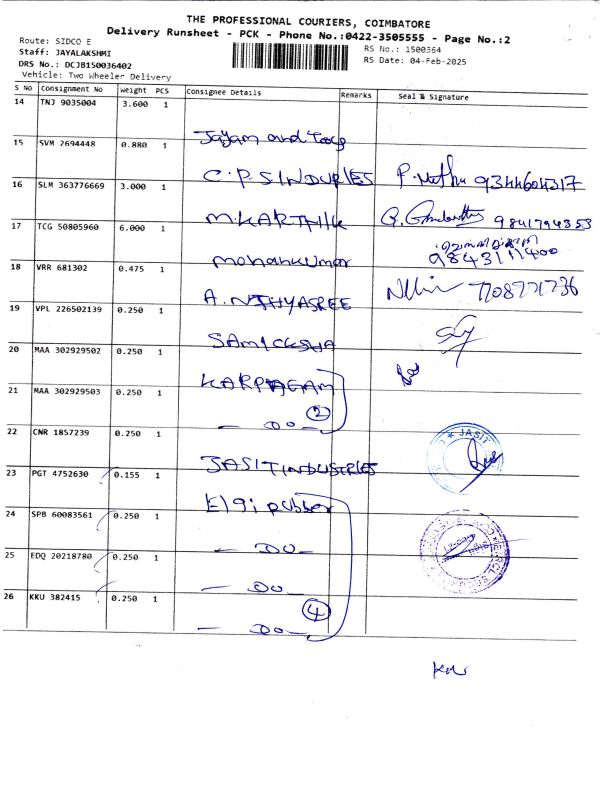 THE PROFESSIONAL COURIERS, COIMBATORE
Delivery Runsheet - PCK - Phone No.:0422-3505555 - Page No.:2
Route: SIDCO E
RS No.: 1500364
Staff: JAYALAKSHMI
RS Date: 04-Feb-2025
DRS No.: DCJB150036402
Vehicle: Two Wheeler Delivery
S No Consignment No Weight PCS Consignee Details Remarks Seal & Signature
14 TNJ 9035004 3.600 1
Jayam and Tools
15 SVM 2694448 0.880 1
C.P.S INDURIES 9344604317
16 SLM 363776669 3.000 1
M.KARTHIK 9841794353
17 TCG 50805960 6.000 1
mohankumar 9843111400
18 VRR 681302 0.475 1
A.NITHYASREE 7708771736
19 VPL 226502139 0.250 1
SAMICKSHA
20 MAA 302929502 0.250 1
KARPAGAM
21 MAA 302929503 0.250 1
— DO — 2
22 CNR 1857239 0.250 1
JASIT INDUSTRIES JASIT
23 PGT 4752630 0.155 1
Elgi rubber
24 SPB 60083561 0.250 1
— DO —
25 EDQ 20218780 0.250 1
— DO —
26 KKU 382415 0.250 1
— DO — 4